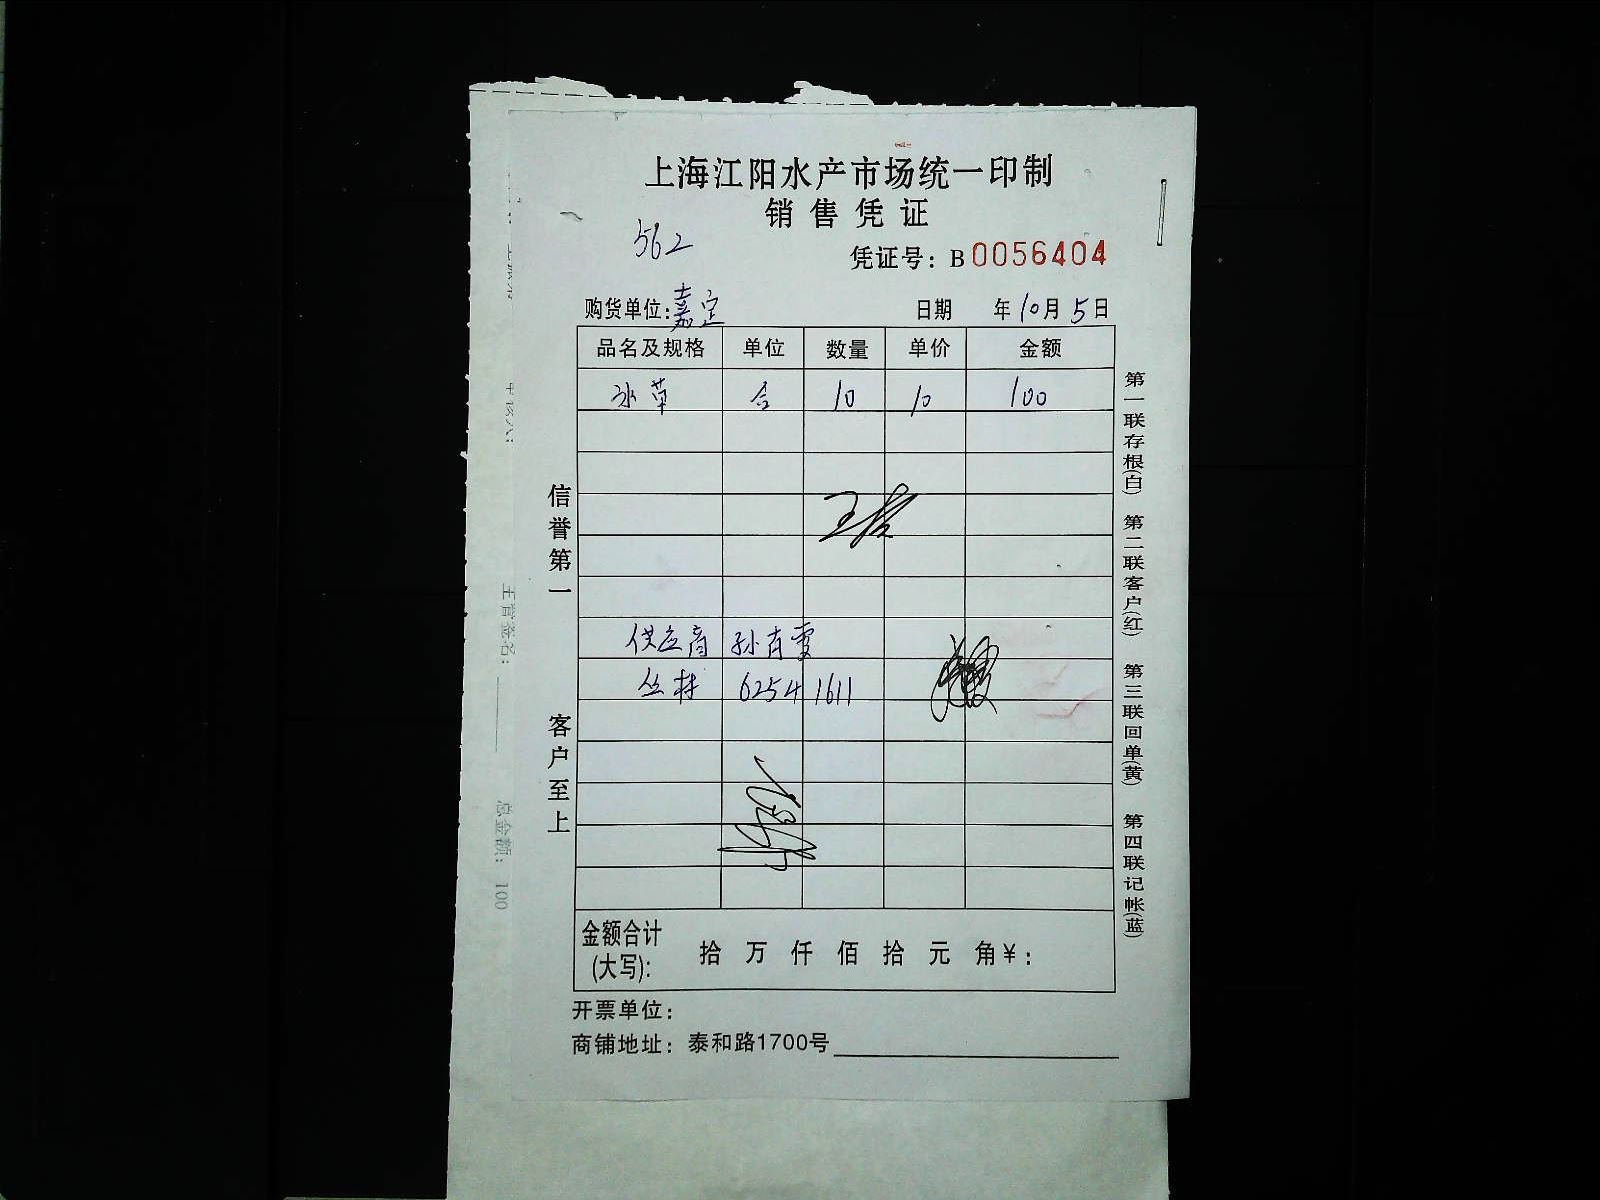 上海江阳水产市场统一印制
销售凭证
562
凭证号：B 0056404
购货单位：嘉定 日期 年10月5日
品名及规格 单位 数量 单价 金额
冰草 合 10 10 100
供应商 孙肖雯
丛林 62541611
金额合计(大写): 拾 万 仟 佰 拾 元 角¥：
开票单位：
商铺地址：泰和路1700号
信誉第一
客户至上
第一联存根(白) 第二联客户(红) 第三联回单(黄) 第四联记帐(蓝)
主管签名：
总金额： 100